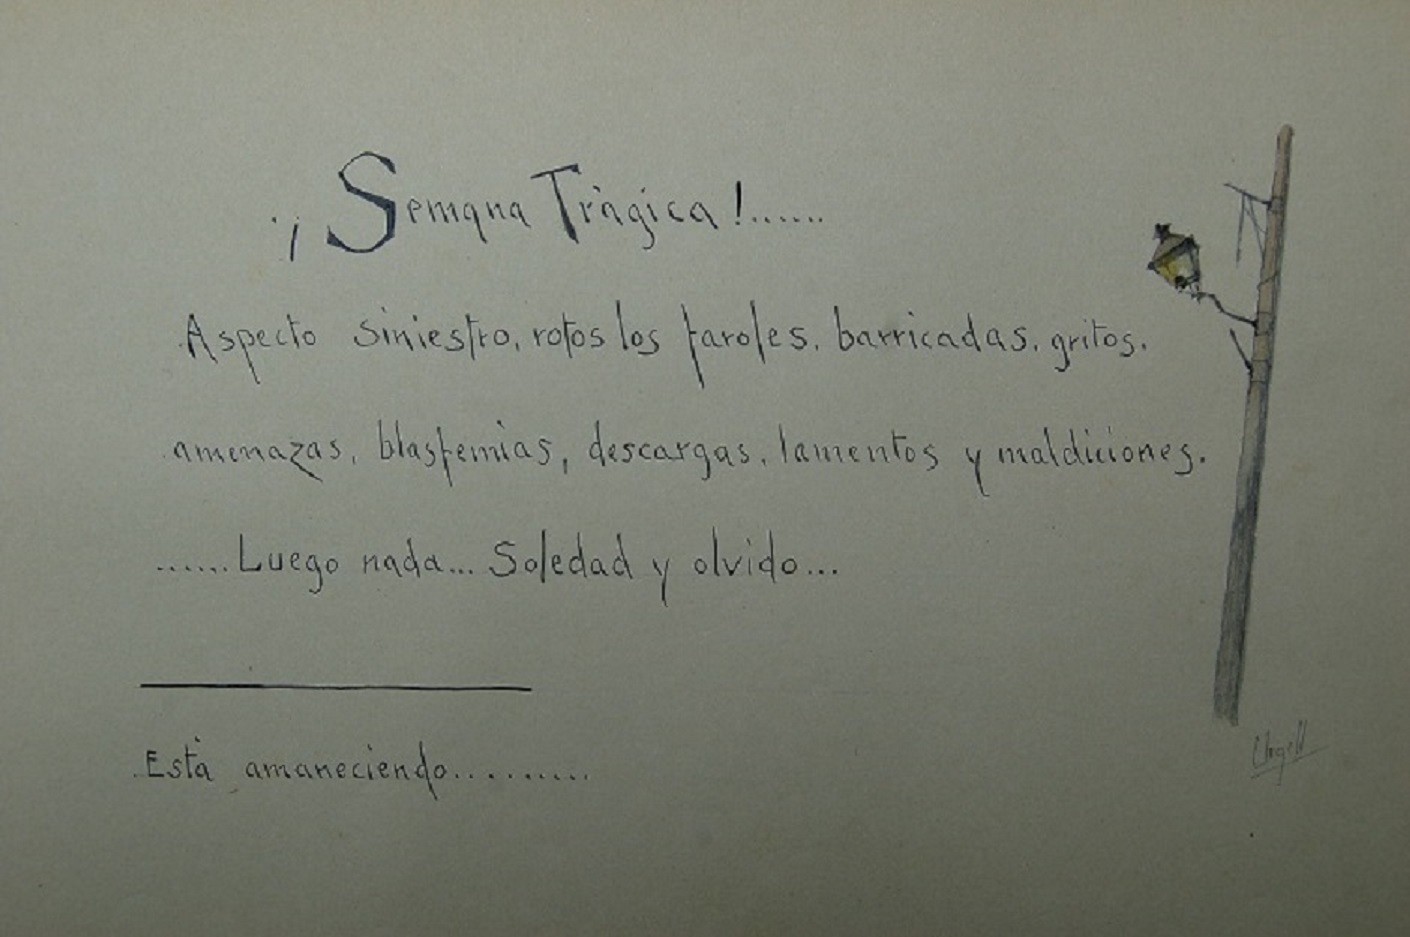 ¡Semana Trágica!......
Aspecto siniestro, rotos los faroles, barricadas, gritos,
amenazas, blasfemias, descargas, lamentos y maldiciones.
......Luego nada... Soledad y olvido...
Está amaneciendo..........
Urgell